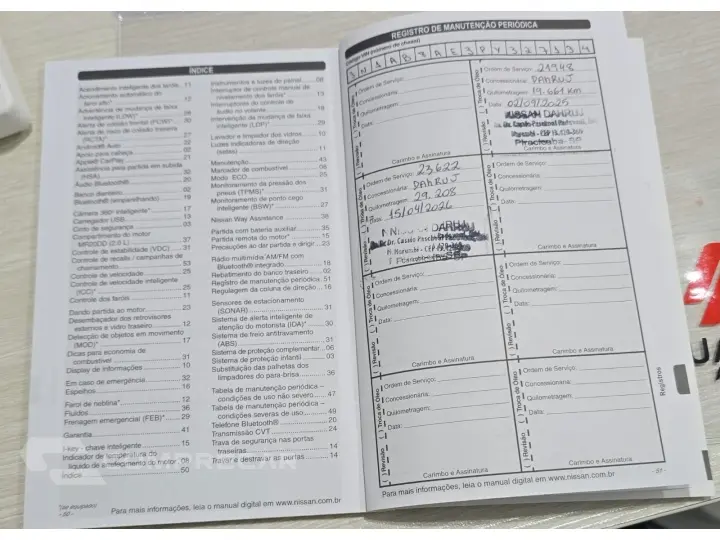 ÍNDICE
Acendimento inteligente dos faróis 11
Acionamento automático do
farol alto* 12
Advertência de mudança de faixa
inteligente (LDW)*
Alerta de colisão frontal (FCW)*
Alerta de risco de colisão traseira
(RCTA)*
Android® Auto
Apoio para cabeça
Apple® CarPlay
Assistência para partida em subida
(HSA)
Áudio Bluetooth® 20
Banco dianteiro 02
Bluetooth® (emparelhando) 19
Câmera 360° inteligente* 17
Carregador USB 13
Cinto de segurança 03
Compartimento do motor
MR20DD (2.0 L) 37
Controle de estabilidade (VDC) 31
Controle de recalls / campanhas de
chamamento 53
Controle de velocidade 25
Controle de velocidade inteligente
(ICC)* 25
Controle dos faróis 11
Dando partida ao motor 23
Desembaçador dos retrovisores
externos e vidro traseiro 12
Detecção de objetos em movimento
(MOD)* 17
Dicas para economia de
combustível 31
Display de informações 10
Em caso de emergência 32
Espelhos 16
Farol de neblina* 12
Fluidos 36
Frenagem emergencial (FEB)* 29
Garantia 41
I-key - chave inteligente 15
Indicador de temperatura do
líquido de arrefecimento do motor 09
Índice 50
Instrumentos e luzes do painel 08
Interruptor de controle manual de
nivelamento dos faróis* 13
Interruptores do controle de
áudio no volante 18
Intervenção de mudança de faixa
inteligente (LDP)* 29
Lavador e limpador dos vidros 10
Luzes indicadoras de direção
(setas) 11
Manutenção 43
Marcador de combustível 08
Modo ECO 25
Monitoramento da pressão dos
pneus (TPMS)* 31
Monitoramento de ponto cego
inteligente (BSW)* 27
Nissan Way Assistance 38
Partida com bateria auxiliar 35
Partida remota do motor* 15
Precauções ao dar partida e dirigir 23
Rádio multimídia AM/FM com
Bluetooth® integrado 18
Rebatimento do banco traseiro 02
Registro de manutenção periódica 51
Regulagem da coluna de direção 16
Sensores de estacionamento
(SONAR) 31
Sistema de alerta inteligente de
atenção do motorista (IDA)* 30
Sistema de freio antitravamento
(ABS) 31
Sistema de proteção complementar 06
Sistema de proteção infantil 03
Substituição das palhetas dos
limpadores do para-brisa 36
Tabela de manutenção periódica –
condições de uso não severo 47
Tabela de manutenção periódica –
condições severas de uso 49
Telefone Bluetooth® 20
Transmissão CVT 24
Trava de segurança nas portas
traseiras 14
Travar e destravar as portas 14
*(se equipado)
- 50 -
Para mais informações, leia o manual digital em www.nissan.com.br
REGISTRO DE MANUTENÇÃO PERIÓDICA
Código VIN (número de chassi)
3N1AB8AE3PY327334
( ) Revisão ( ) Troca de Óleo
Ordem de Serviço:
Concessionária:
Quilometragem:
Data:
Carimbo e Assinatura
( ) Revisão ( ) Troca de Óleo
Ordem de Serviço: 21948
Concessionária: DAHRUJ
Quilometragem: 19.661 Km
Data: 02/09/2025
NISSAN DAHRUJ
Piracicaba-SP
Carimbo e Assinatura
( ) Revisão ( ) Troca de Óleo
Ordem de Serviço: 23622
Concessionária: DAHRUJ
Quilometragem: 29.208
Data: 15/04/2026
NISSAN DAHRUJ
( ) Revisão ( ) Troca de Óleo
Ordem de Serviço:
Concessionária:
Quilometragem:
Data:
Carimbo e Assinatura
( ) Revisão ( ) Troca de Óleo
Ordem de Serviço:
Concessionária:
Quilometragem:
Data:
Carimbo e Assinatura
( ) Revisão ( ) Troca de Óleo
Ordem de Serviço:
Concessionária:
Quilometragem:
Data:
Carimbo e Assinatura
( ) Revisão ( ) Troca de Óleo
Ordem de Serviço:
Concessionária:
Quilometragem:
Data:
Carimbo e Assinatura
( ) Revisão ( ) Troca de Óleo
Ordem de Serviço:
Concessionária:
Quilometragem:
Data:
Carimbo e Assinatura
Registros
Para mais informações, leia o manual digital em www.nissan.com.br